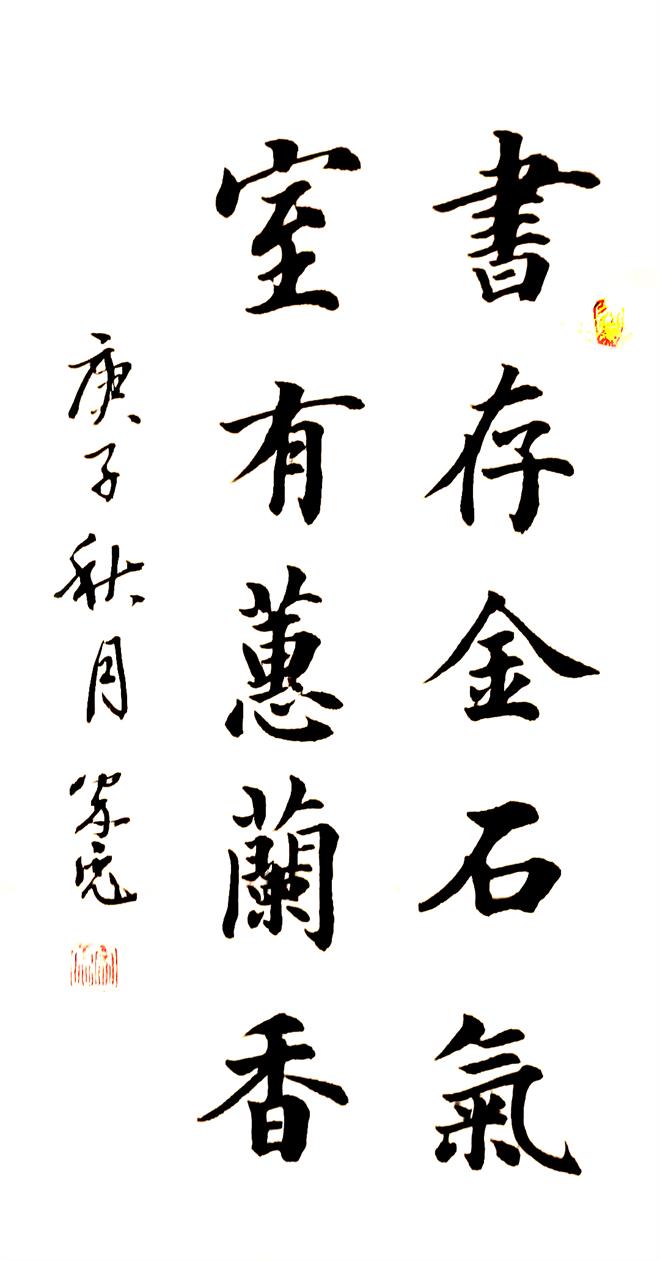 書存金石氣
室有蕙蘭香
庚子秋月